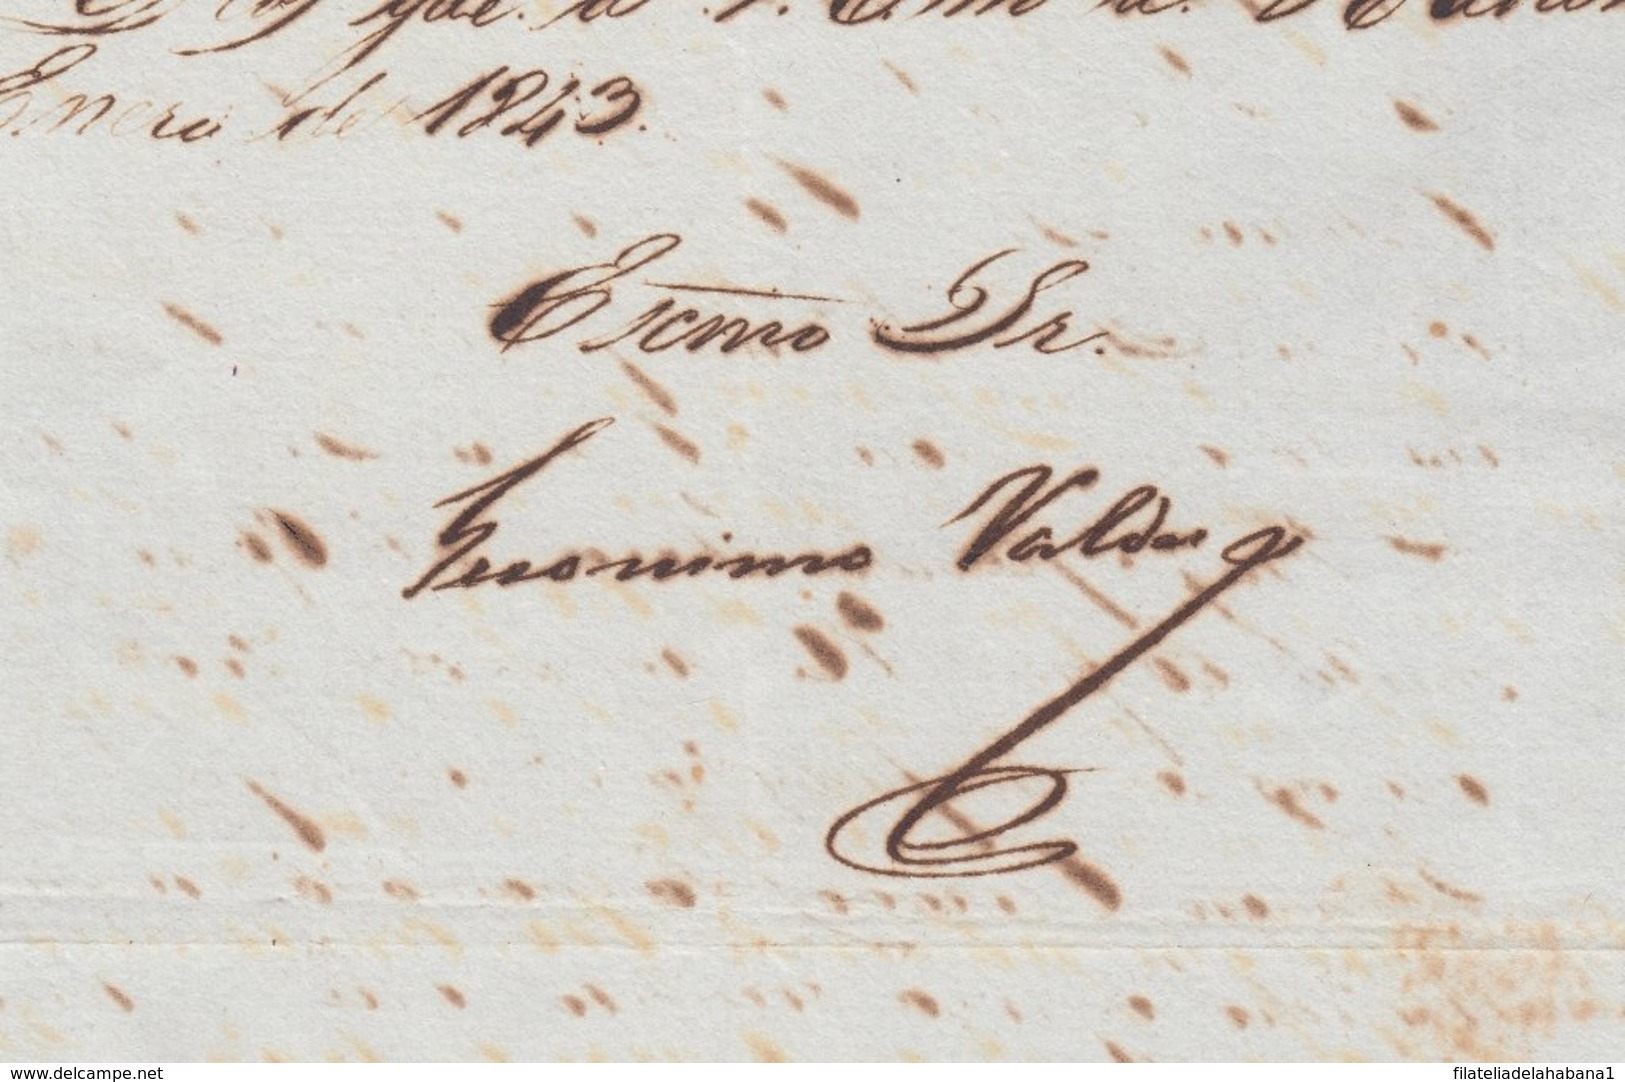 Dios gde. a V. E. m. a.
Enero de 1843.
Escmo Sr.
Geronimo Valdes
www.delcampe.net
filateliadelahabana1